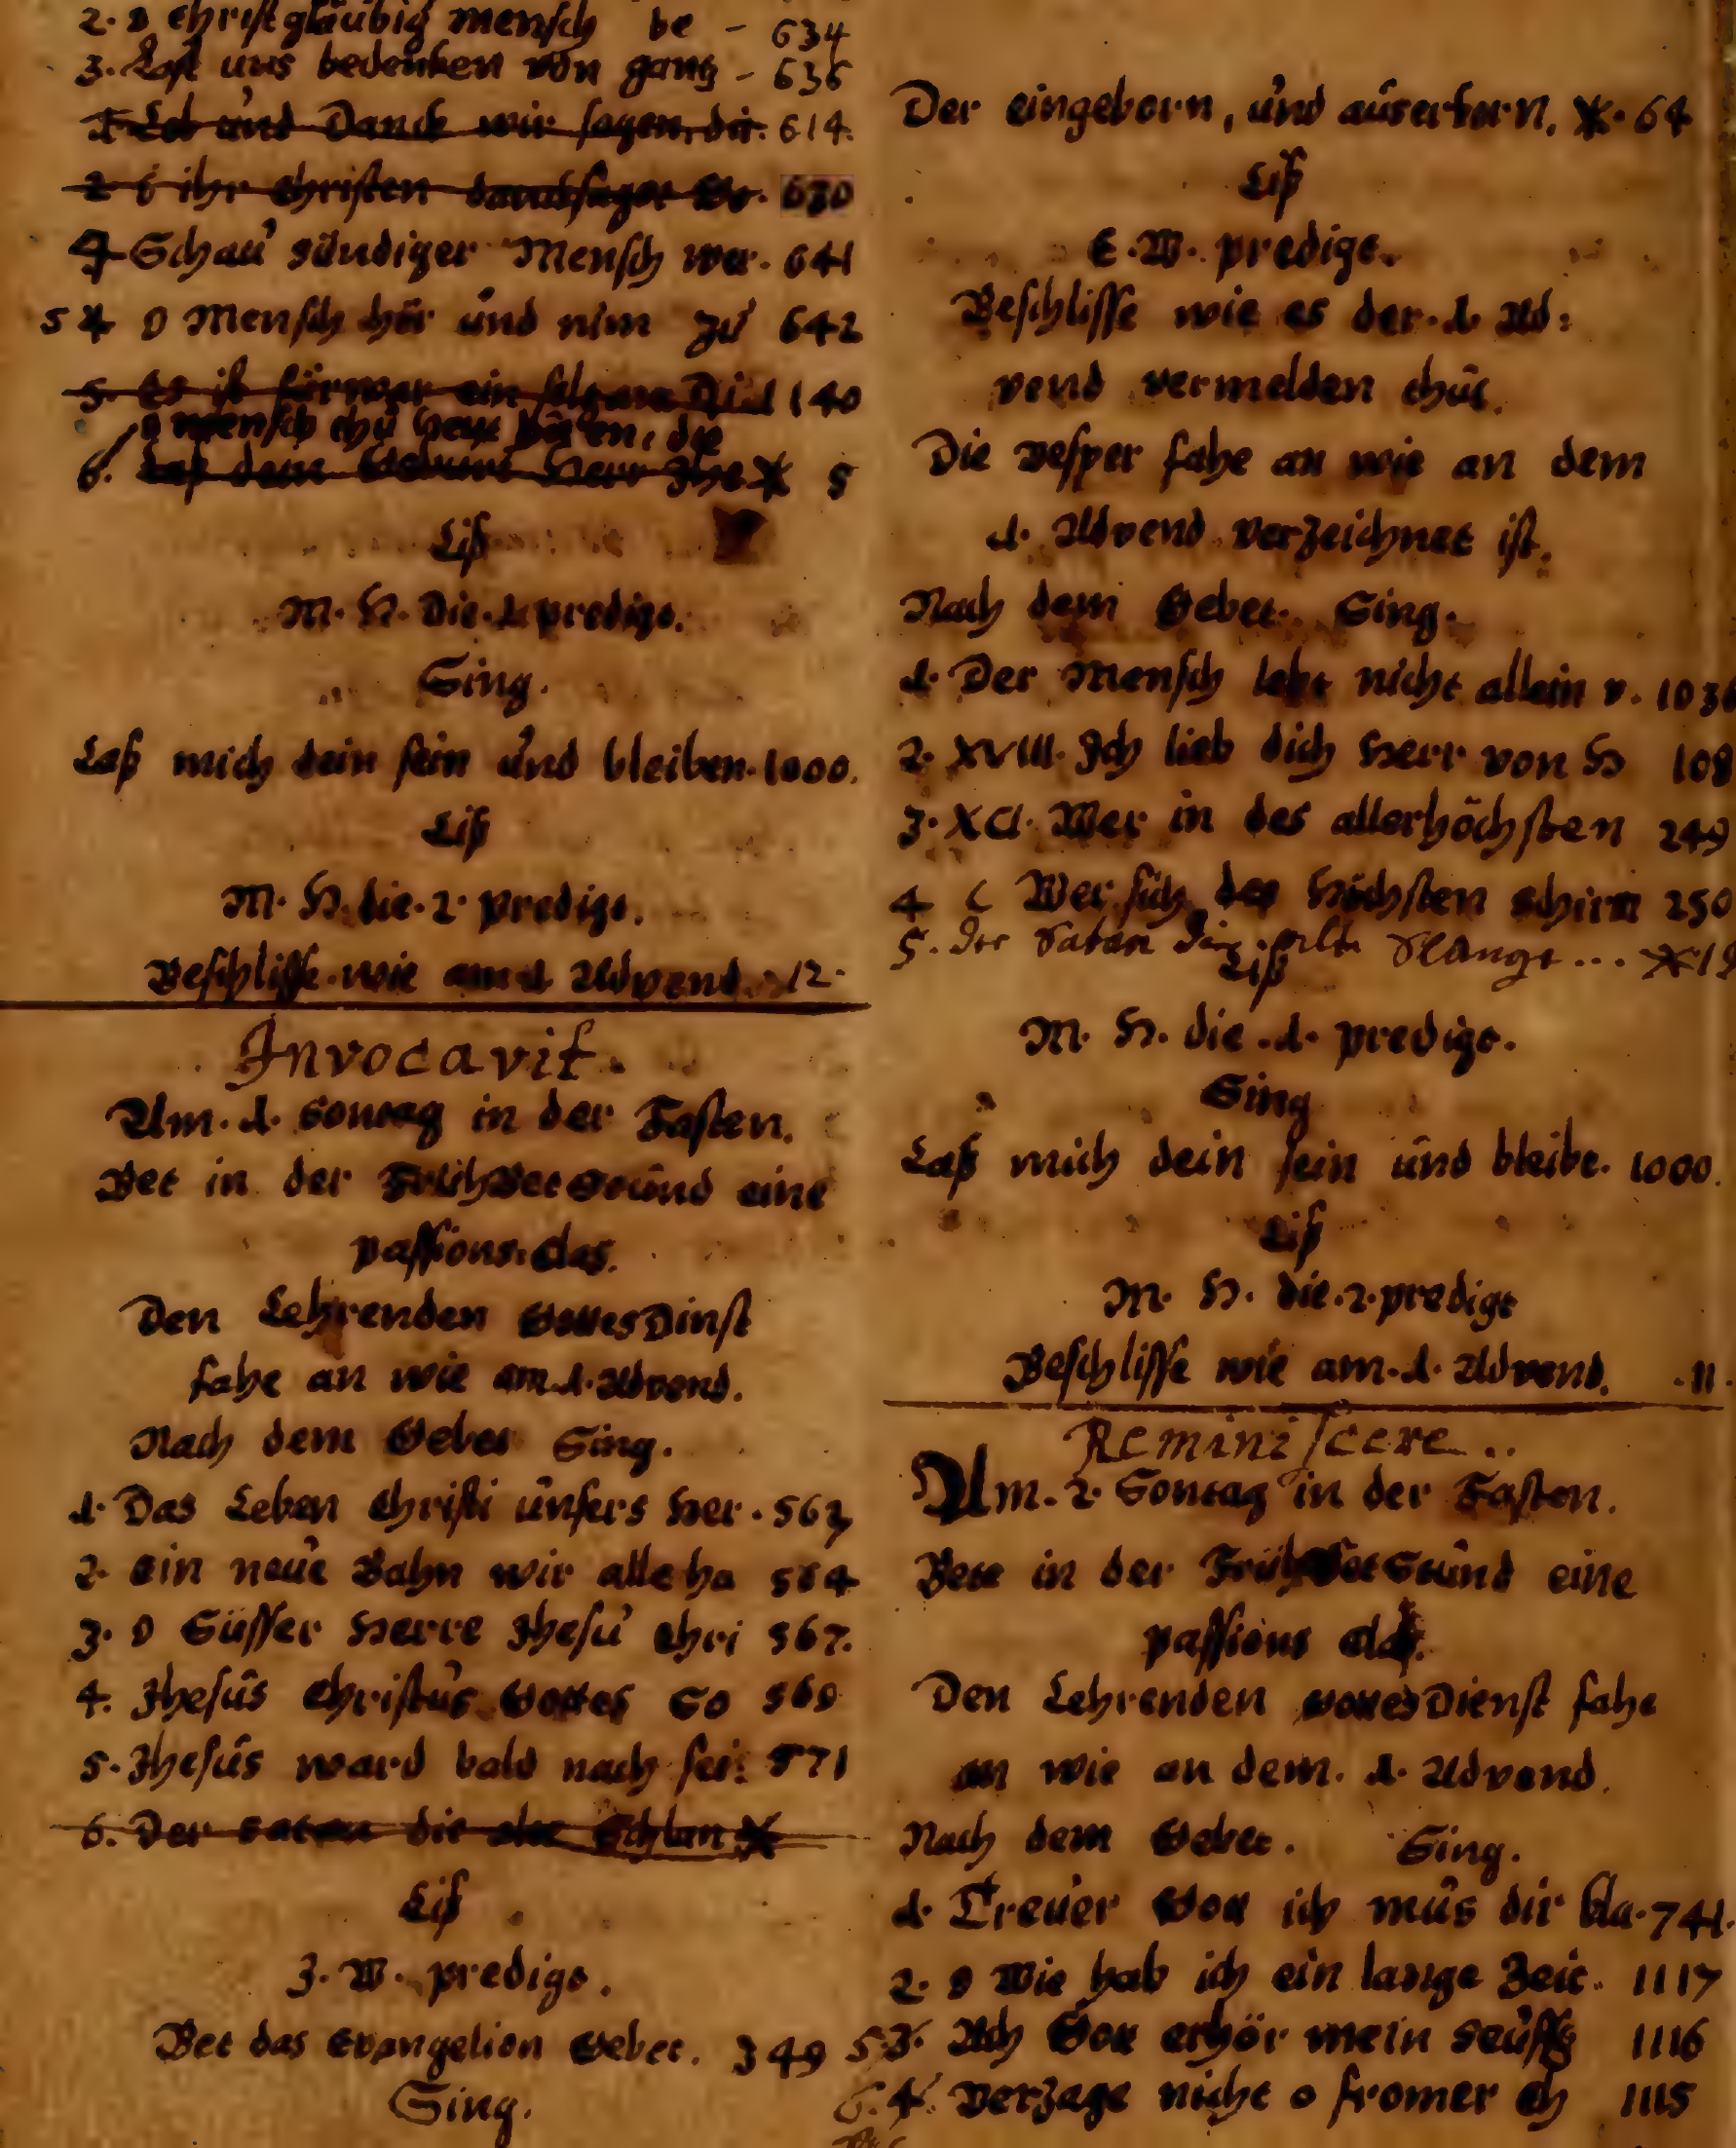 2. O Christgläubig mensch be - 634
3. Last uns bedenken von gantz - 636
1 Lob und Danck wir sagen, dir. 614.
2 ô ihr Christen dancksaget Go. 630
4 Schau sündiger Mensch wer. 641
5 4 O Mensch hör und nim zu 642
5. Es ist fürwar ein selzame Di 140
O mensch thu heut hören, die
6. Laß deine Herr Jhe X 5
Liß
M. H. Die .1. predigt.
Sing.
Laß mich dein sein und bleiben. 1000.
Liß
M. H. die .2. predigt.
Beschlisse wie am 1 Advend. 12.
Invocavit.
Am .1. Sontag in der Fasten.
Bet in der FrühBetStund eine
passions.
Den Lehrenden GottesDinst
fahe an wie am .1. Advend.
Nach dem Gebet Sing.
1. Das Leben Christi unsers Her. 563
2. Ein neue Bahn wir alle ha 564
3. O Süsser Herre Jhesu Chri 567.
4. Jhesus Christus Gottes So 569
5. Jhesus ward bald nach sei: 571
6. Der Satan die alte Schlan X
Liß
J. W. predigt.
Bet das Evangelion Gebet. 349
Sing.
Der eingeborn, und auserkorn, X. 64
Liß
E. W. predigt.
Beschlisse wie es der .1. Ad:
vend vermelden thut.
Die vesper fahe an wie an dem
1. Advend verzeichnet ist.
Nach dem Gebet. Sing.
1. Der Mensch lebt nicht allein v. 103
2. XVIII. Ich lieb dich Herr von H 108
3. XCI. Wer in des allerhöchsten 249
4 C Wer sich des Höchsten schirm 250
5. der Satan die alte Slange ... X 19
Liß
M. H. die .1. predigt.
Sing
Laß mich dein sein und bleibe. 1000.
Liß
M. H. die .2. predigt
Beschlisse wie am .1. Advend. .11.
Reminiscere..
Am .2. Sontag in der Fasten.
Bete in der FrühBetStund eine
passions
Den Lehrenden GottesDienst fahe
an wie an dem .1. Advend.
Nach dem Gebet. Sing.
1. Treuer Gott ich mus dir kla. 741.
2. O Wie hab ich ein lange Zeit. 1117
5. 3. Ach Gott erhör mein Seufftz 1116
6. 4. Verzage nicht o fromer Ch 1115